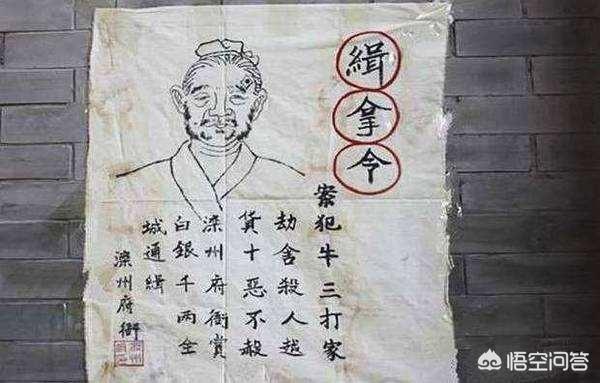 緝拿令
案犯牛三打家
劫舍殺人越
貨十惡不赦
滦州府衙賞
白銀千两全
城通緝
滦州府衙
悟空问答